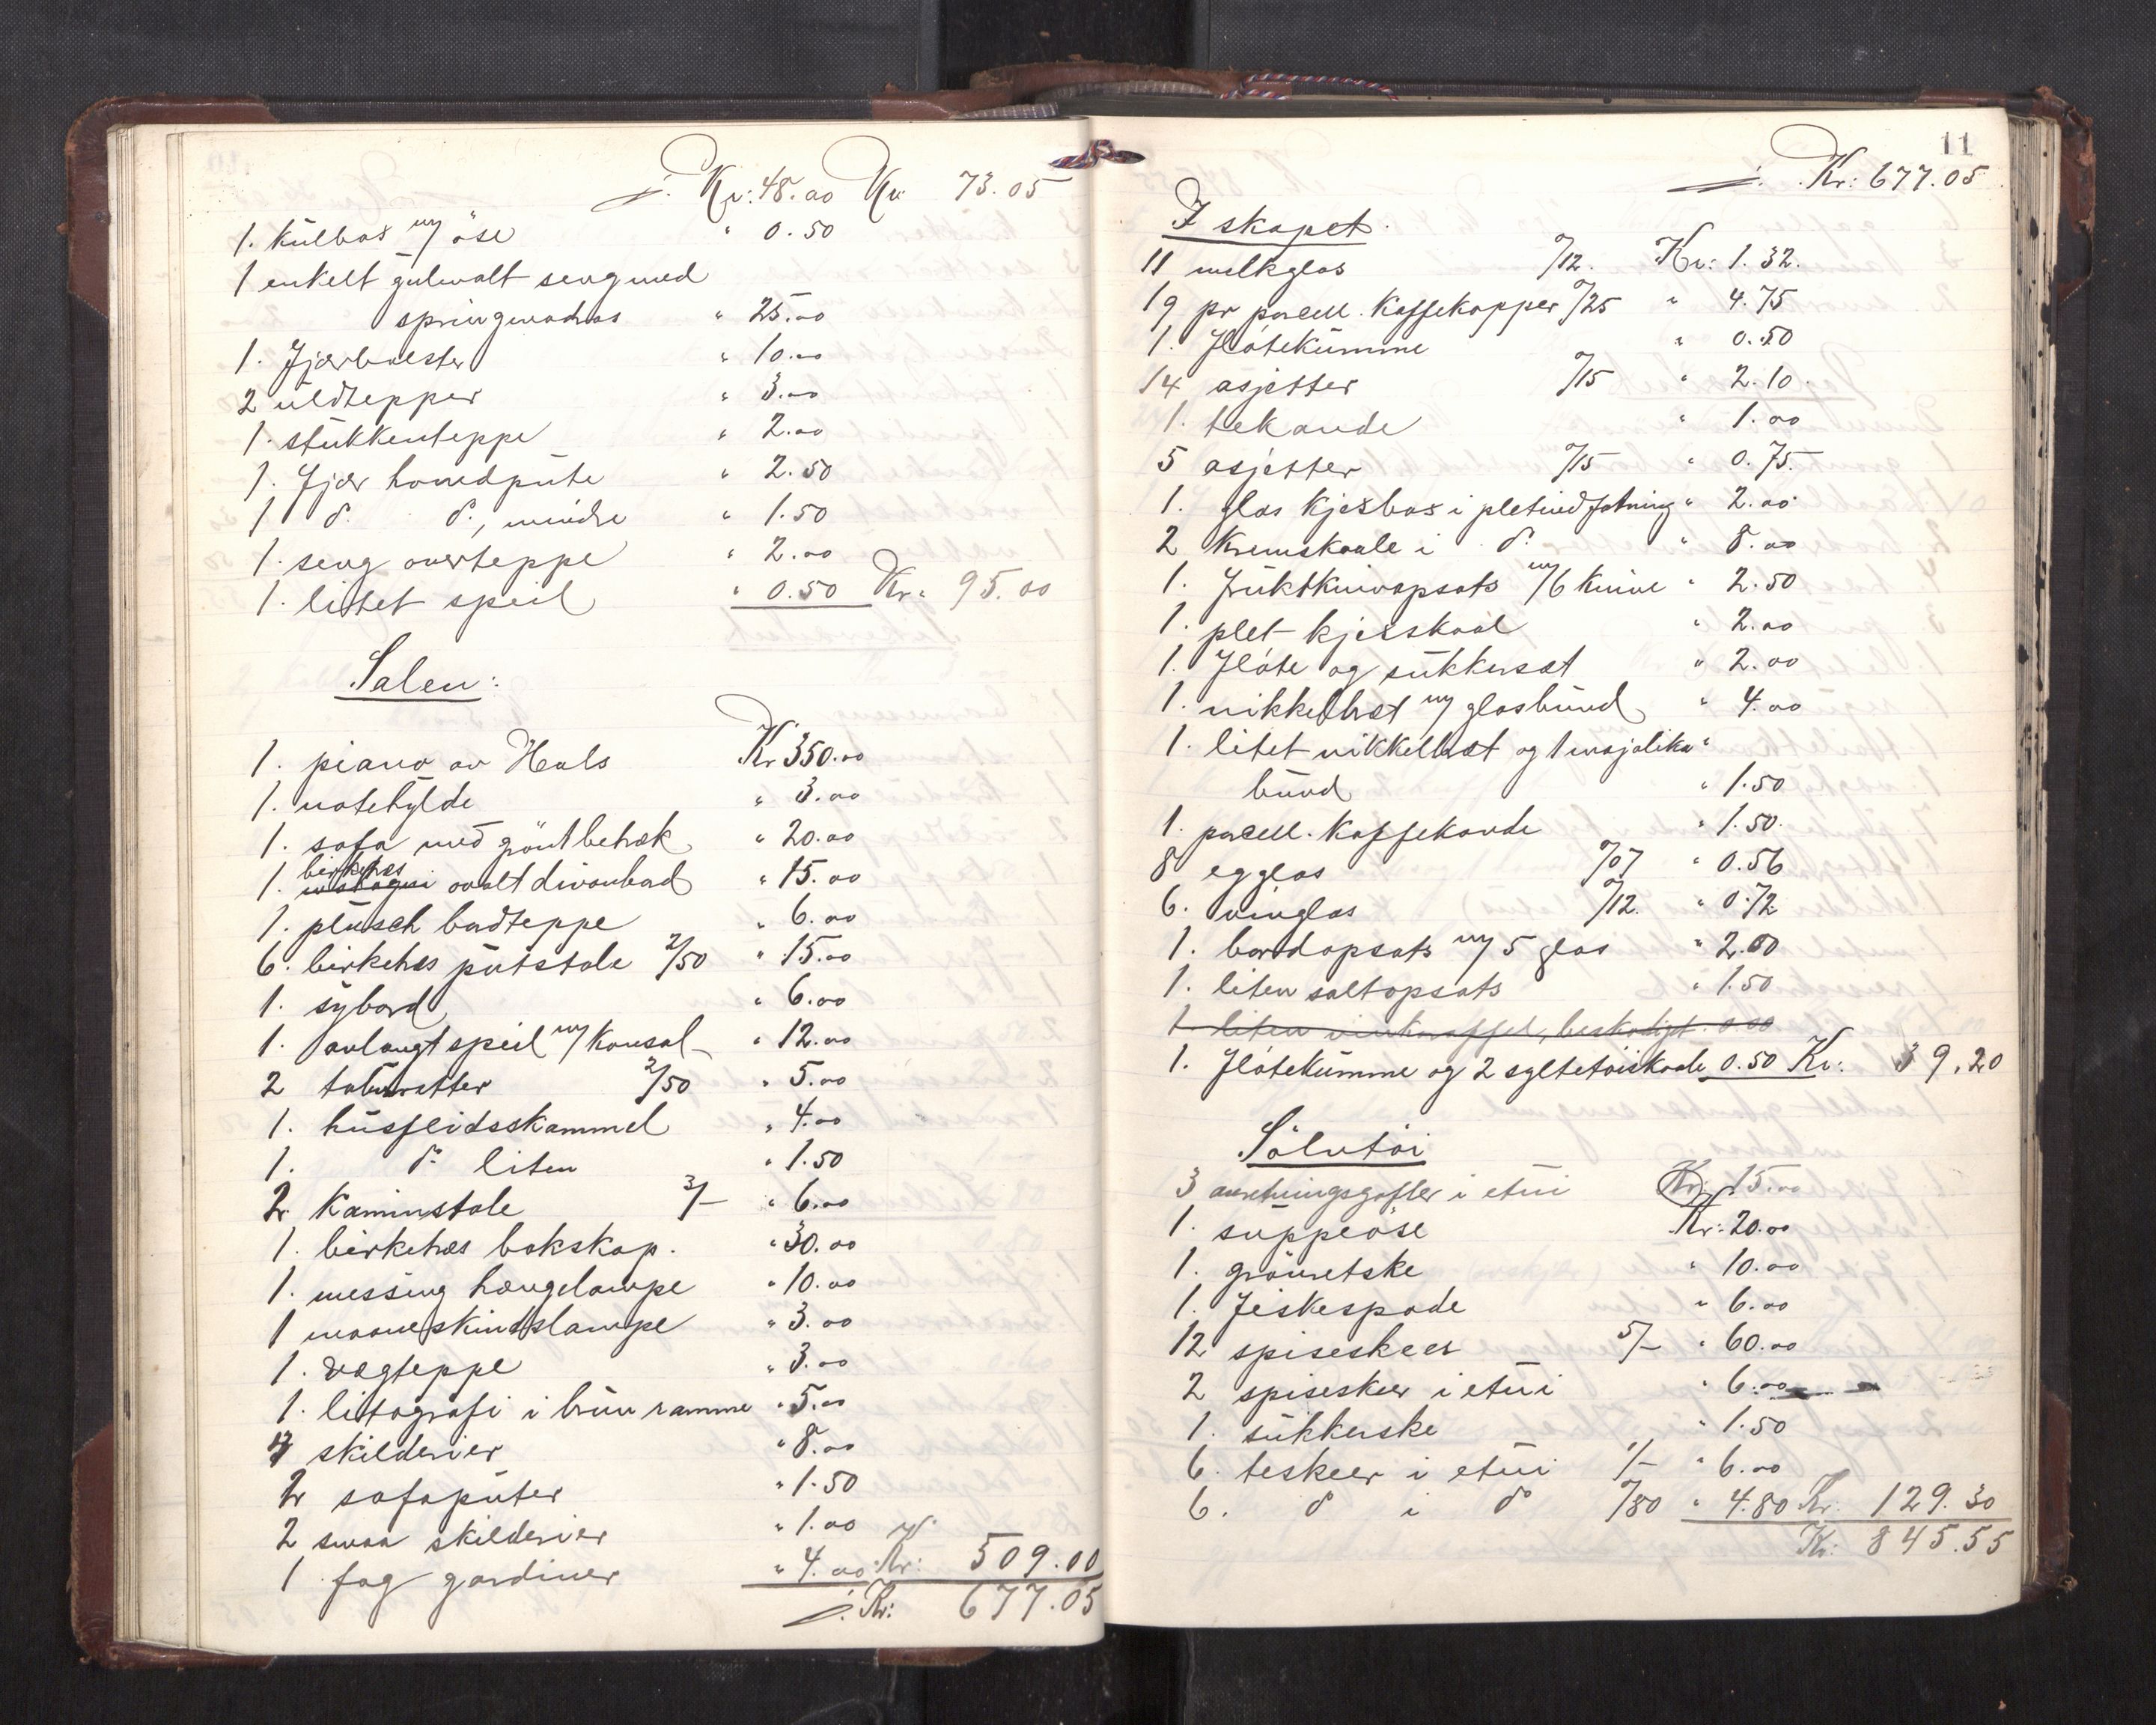 j. Kr: 48.00 Kr. 73.05
1. kulbox m/ öse " 0.50
1 enkelt gulmalt seng med
springmadras " 25.00
1. Fjærbolster " 10.00
2 uldtepper " 3.00
1. stukkenteppe " 2.00
1. Fjær hovedpute " 2.50
1 do. do., mindre " 1.50
1. seng overteppe " 2.00
1. litet speil " 0.50 Kr. 95.00
Salen:
1. piano av Hals Kr 350.00
1. notehylde " 3.00
1. sofa med grönt betræk " 20.00
birketræs
1. mahogni ovalt divanbord " 15.00
1. plusch bordteppe " 6.00
6. birketræs putstole 2/50 " 15.00
1. sybord " 6.00
1. avlangt speil m/ konsol " 12.00
2 taburetter 2/50 " 5.00
1. husflidsskammel " 4.00
1. do. liten " 1.50
2. Kaminstole 3/- " 6.00
1. birketræs bokskap. " 30.00
1. messing hængelampe " 10.00
1 maaneskinslampe " 3.00
1. vægteppe " 3.00
1. litografi i brun ramme " 5.00
4 skilderier " 8.00
2 sofaputer " 1.50
2 smaa skilderier " 1.00
1 fag gardiner " 4.00 Kr: 509.00
j. Kr: 677.05
11
j. Kr: 677.05
I skapet.
11 melkglas 0/12. Kr: 1.32.
19 pr porcell. Kaffekopper 0/25 " 4.75
1. Flötekumme " 0.50
14 asjetter 0/15 " 2.10.
1. tekande " 1.00
5 asjetter 0/15 " 0.75.
1. glas kjeksbox i pletindfatning " 2.00
2 kremskaale i do. " 8.00
1. Fruktknivopsats m/6 knive " 2.50
1. plet-kjeksskaal " 2.00
1. Flöte og sukkersæt " 2.00
1. nikkelbræt m/ glasbund " 4.00
1. litet nikkelbræt og 1 majolika "
bund " 1.50
1. porcell. Kaffekande " 1.50.
8 egglas 0/07 " 0.56
6. vinglas 0/12. " 0.72
1. bordopsats m/ 5 glas " 2.00
1. liten saltopsats " 1.50
1 liten vinkaraffel, beskadiget. 0.00
1. Flötekumme og 2 syltetöiskaale 0.50 Kr: 39.20
Sölvtöi
3 anretningsgafler i etui Kr: 15.00
1. suppeöse Kr: 20.00
1. grönretske " 10.00
1. Fiskespade " 6.00
12 spiseskeer 5/- " 60.00
2 spiseskeer i etui " 6.00
1. sukkerske " 1.50
6. teskeer i etui 1/- " 6.00
6. do i do 0/80 " 4.80 Kr: 129.30
Kr: 845.55